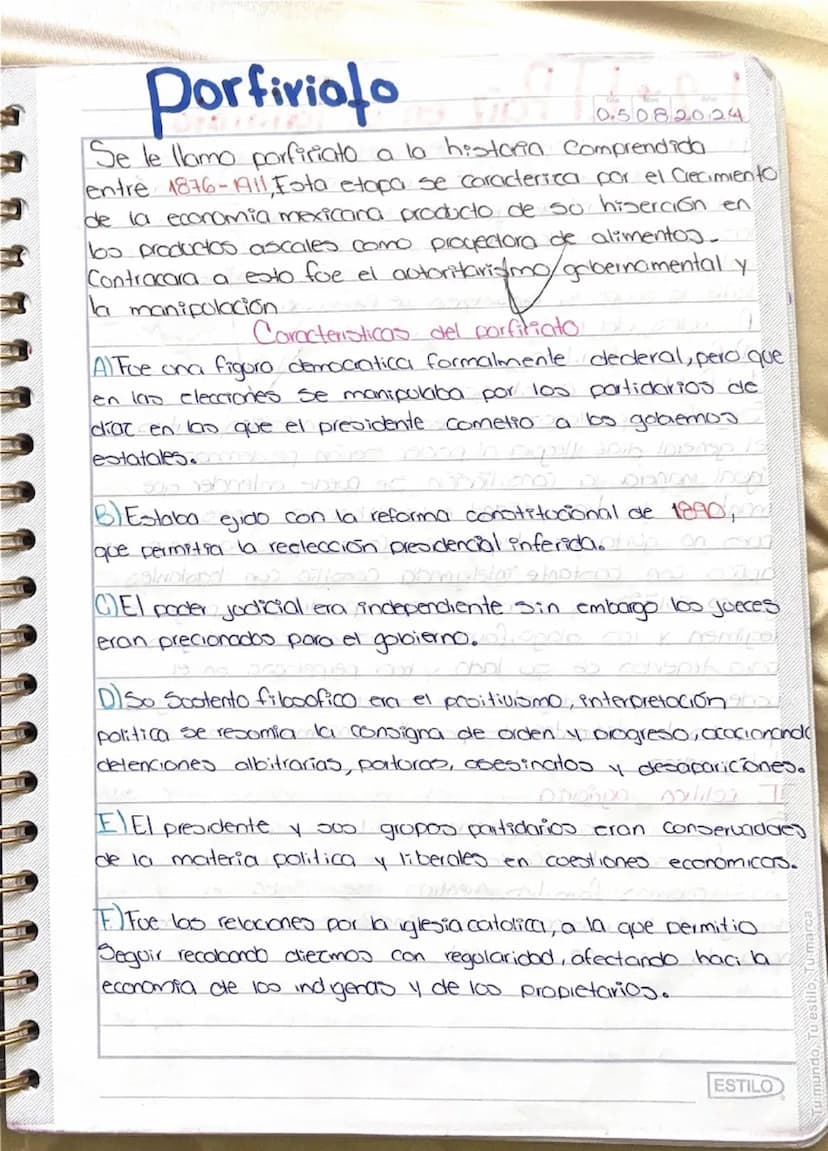 Porfiriato
05 08 2024
Se le llamo porfiriato a la historia Comprendida
entre 1876-1911, Esta etapa se caracterica por el Crecimiento
de la economia mexicana producto de so hiserción en
los productos ascales como proyectora de alimentos.
Contracara a esto foe el autoritarismo/gobernamental y
la manipolación
Caracteristicas del porfiriato
A) Foe una figora democratica formalmente dederal, pero que
en las elecciones se manipulaba por los partidarios de
díaz en las que el presidente cometio a los gobernos
estatales.
B) Estaba ejido con la reforma constitocional de 1890,
que permitia la reelección presdencial inferida.
C) El poder jodicial era independiente sin embargo los joeces
eran precionados para el gobierno.
D) So Sostento filosofico era el positivismo, interpretación
politica se resomia la consigna de orden y progreso, ocacionando
detenciones albitrarias, partoras, asesinatos y desapariciones.
E) El presidente y sos gropos partidarios eran conservadores
de la materia politica y liberales en coestiones economicas.
F) Foe las relaciones por la iglesia catolica, a la que permitio
Segoir recobando diezmos con regolaridad, afectando haci la
economia de los indigenas y de los propietarios.
ESTILO
Tu mundo, Tu estilo, Tu marca